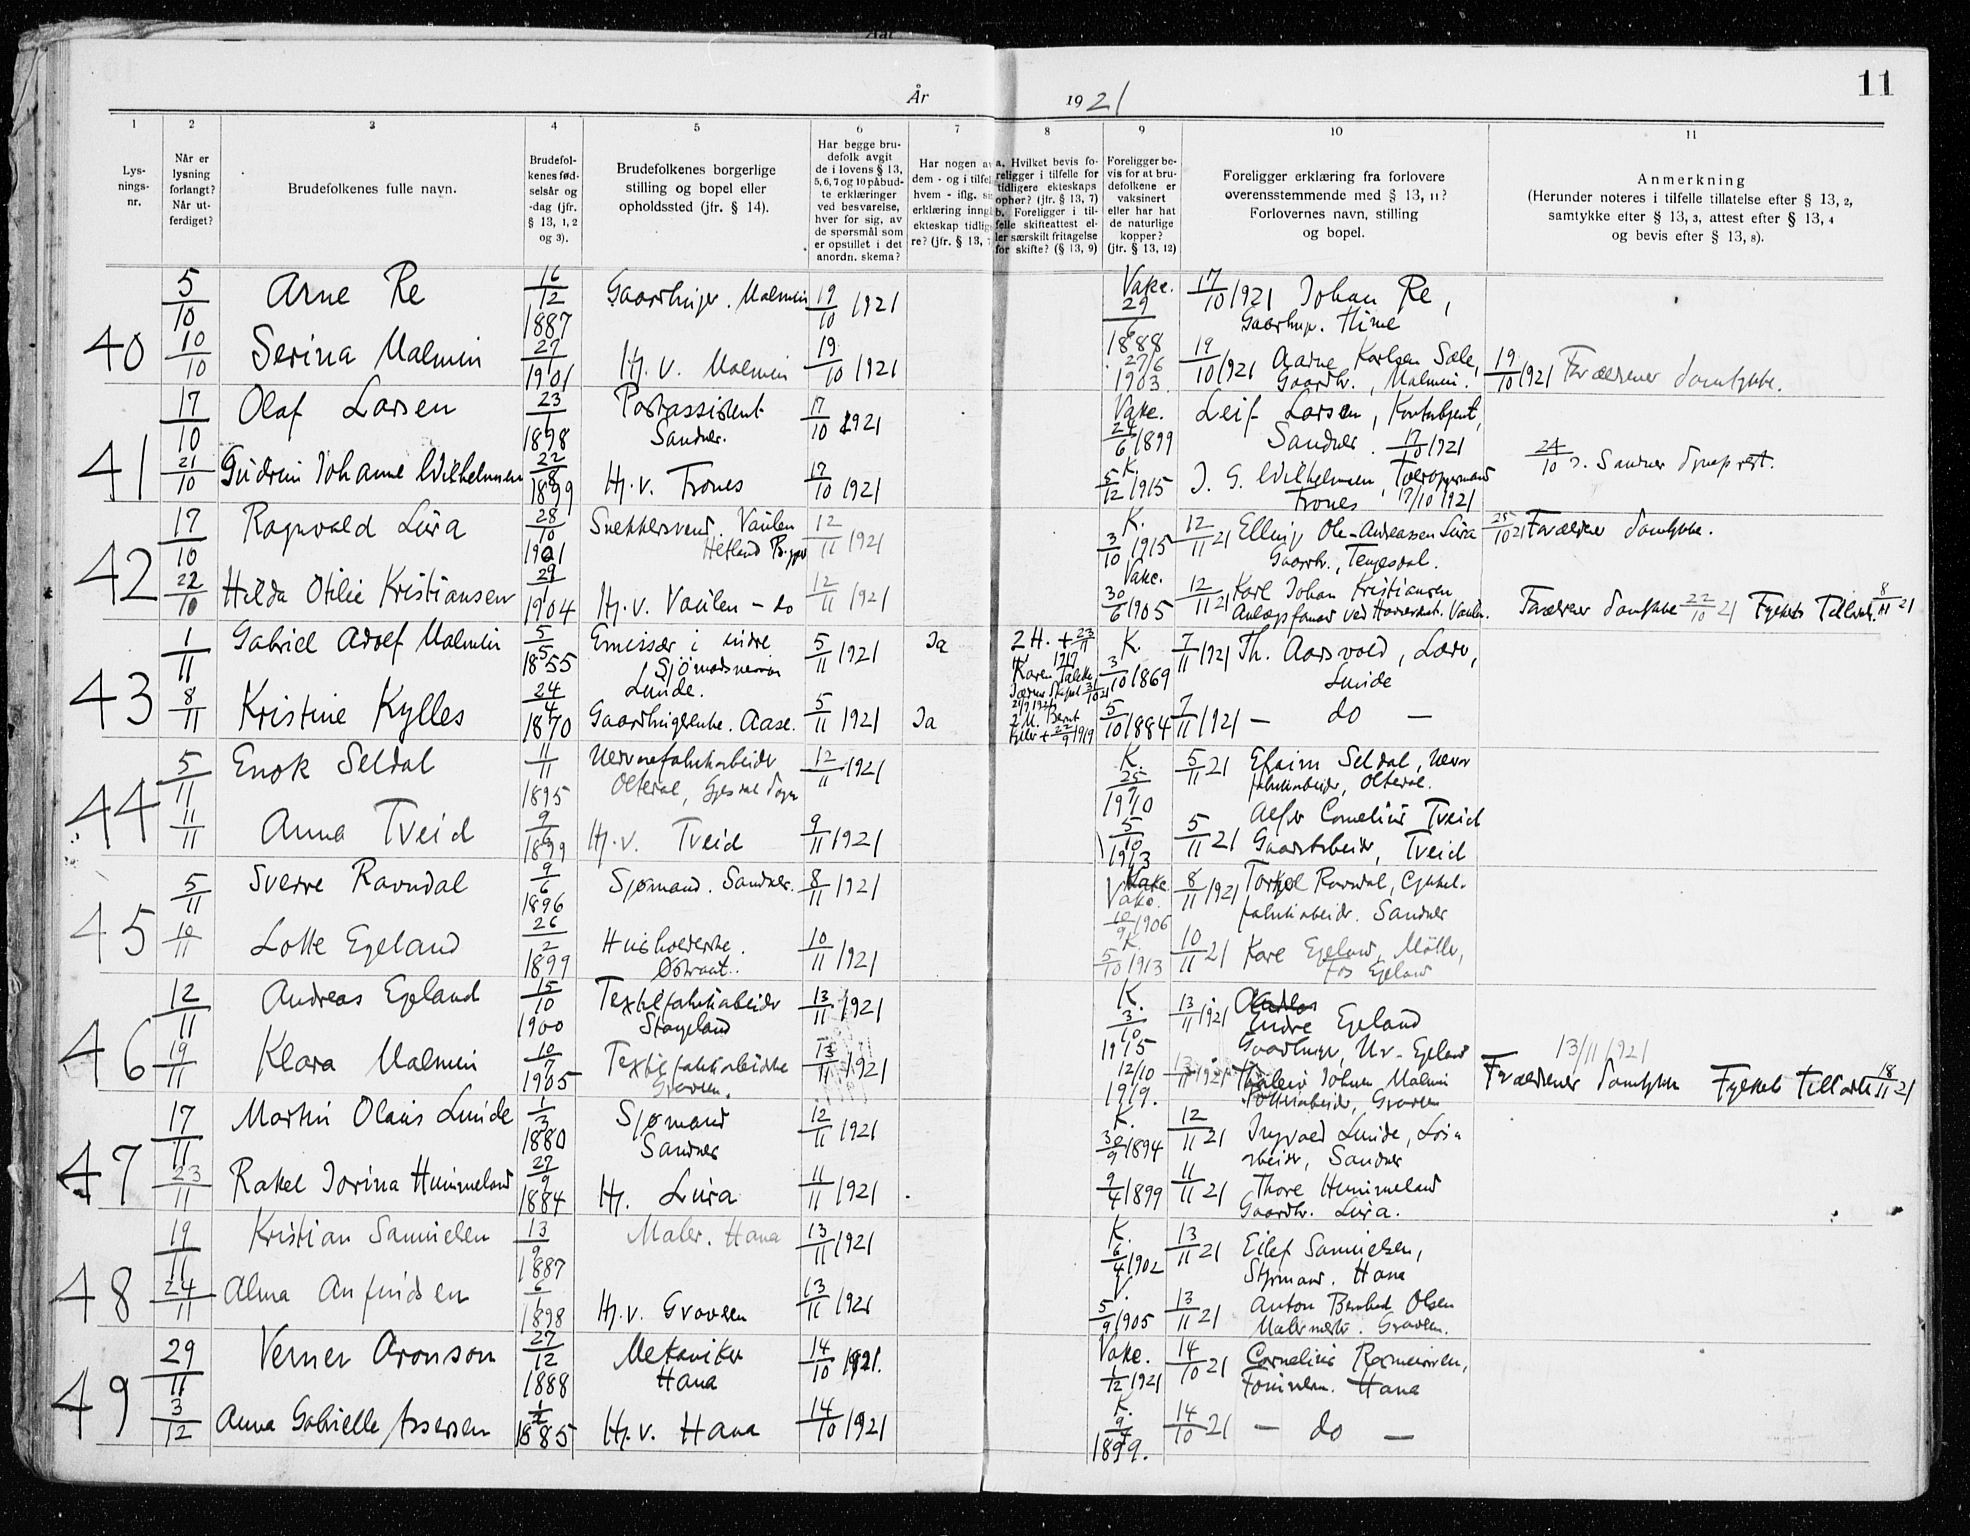 År 1921
11
1 2 3 4 5 6 7 8 9 10 11
Lys-
nings-
nr.
Når er
lysning
forlangt?
Når ut-
ferdiget?
Brudefolkenes fulle navn.
Brudefol-
kenes fød-
selsår og
-dag (jfr.
§ 13, 1, 2
og 3).
Brudefolkenes borgerlige
stilling og bopel eller
opholdssted (jfr. § 14).
Har begge bru-
defolk avgit
de i lovens § 13,
5, 6, 7 og 10 påbud-
te erklæringer
ved besvarelse,
hver for sig, av
de spørsmål som
er opstillet i det
anordn. skema?
Har nogen av
dem - og i tilfel
hvem - iflg. si
erklæring inng
ekteskap tidlig
re? (jfr. § 13, 7
a. Hvilket bevis fo-
religger i tilfelle for
tidligere ekteskaps
ophør? (jfr. § 13, 7)
b. Foreligger i til-
felle skifteattest el-
ler særskilt fritagelse
for skifte? (§ 13, 9)
Foreligger be-
vis for at bru-
defolkene er
vaksinert
eller har hat
de naturlige
kopper?
(jfr. § 13, 12)
Foreligger erklæring fra forlovere
overensstemmende med § 13, 11?
Forlovernes navn, stilling
og bopel.
Anmerkning
(Herunder noteres i tilfelle tillatelse efter § 13, 2,
samtykke efter § 13, 3, attest efter § 13, 4
og bevis efter § 13, 8).
40
5/10 Arne Re 16/12 1887 Malmin 19/10 1921 Vakc. 29/6 1888 17/10 1921 Johan Re,
Hime
10/10 Serina Malmin 27/1 1901 Hj. v. Malmin 19/10 1921 27/6 1903 19/10 1921 Karlsen Sæle,
Gaardbr., Malmin. 19/10 1921 Forældrenes Samtykke.
41
17/10 Olaf Larsen 23/1 1898 Postassistent
Sandnes. 17/10 1921 Vakc. 24/6 1899 Leif Larsen,
Sandnes. 17/10 1921
21/10 Gudrun Johanne Wilhelmsen 22/8 1899 Hj. v. Trones 17/10 1921 K. 5/12 1915 J. G. Wilhelmsen,
Trones 17/10 1921
24/10 Sandnes
42
17/10 Ragnvald Lura 28/10 1901 Snekkersvend. Vaulen
Hetland 12/11 1921 K. 3/10 1915 12/11 21 Elling Ole-Andreassen Lura
Gaardb., Tengesdal. 25/10 21 Forældres Samtykke.
22/10 Hilda Otilie Kristiansen 29/1 1904 Hj. v. Vaulen - do 12/11 1921 Vakc. 30/6 1905 12/11 21 Karl Johan Kristiansen
Vaulen. Forældres Samtykke 22/10 21 Fylkets Tillad. 8/11 21
43
1/11 Gabriel Adolf Malmin 5/5 1855 Emissær i indre
Lunde. 5/11 1921 Ja 2 H. + 23/11 1917
K. 3/10 1869 7/11 1921 Th. Aarsvold, Lærer,
Lunde
8/11 Kristine Kylles 24/4 1870 Gaardbrugerenke. Aase. 5/11 1921 Ja + 22/9 1919 5/10 1884 7/11 1921 - do -
44
5/11 Enok Seldal 11/11 1895 Uldvarefabrikarbeider
Olteral, Gjesdal Sogn 12/11 1921 K. 25/9 1910 5/11 21 Efraim Seldal,
Olteral.
11/11 Anna Tveid 9/6 1899 Hj. v. Tveid 9/11 1921 5/10 1913 5/11 21 Cornelius Tveid
Gaardarbeider, Tveid
45
5/11 Sverre Ravndal 9/6 1896 Sjømand. Sandnes. 8/11 1921 Vakc. 10/9 1906 8/11 1921 Torkel Ravndal, Cykkel-
fabrikarbeider. Sandnes
10/11 Lotte Egeland 26/2 1899 Husholderske.
Østraat. 10/11 1921 K. 5/10 1913 10/11 21 Kare Egeland, Møller,
Fos Egeland
46
12/11 Andreas Egeland 15/10 1900 Textilfabrikarbeider
Stangeland 13/11 1921 K. 3/10 1915 13/11 1921 Endre Egeland
Egeland
19/11 Klara Malmin 10/7 1905 Textilfabrikarbeiderske
Graveren. 13/11 1921 12/10 1919. 13/11 1921 Johan Malmin
Graveren 13/11 1921
Forældrenes Samtykke Fylkets Tilladelse 18/11 21
47
17/11 Martin Olaus Lunde 1/3 1880 Sjømand
Sandnes 12/11 1921 K. 30/9 1894 12/11 21 Ingvald Lunde,
Sandnes
23/11 Rakel Jorina Hummeland 27/9 1884 Hj. Lura 11/11 1921. 9/4 1899 11/11 21 Thore Hummeland
Gaardbr. Lura.
48
19/11 Kristian Samuelsen 13/9 1887 Maler. Hana 13/11 1921 K. 6/4 1902 13/11 21 Eilef Samuelsen,
Styrmand. Hana
24/11 Alma Anfindsen 6/1 1898 Hj. v. Graveren 13/11 1921 V. 5/9 1905 13/11 21 Anton Bernhard Olsen
Malermester. Graveren.
49
29/11 Verner Aronson 27/12 1888 Mekaniker
Hana 14/10 1921. Vakc. 1/12 1921 14/10 21 Cornelius Rasmussen,
Hana
3/12 Anna Gabrielle Assersen 1885 Hj. v. Hana 14/10 1921 K. 1899. 14/10 21 - do -